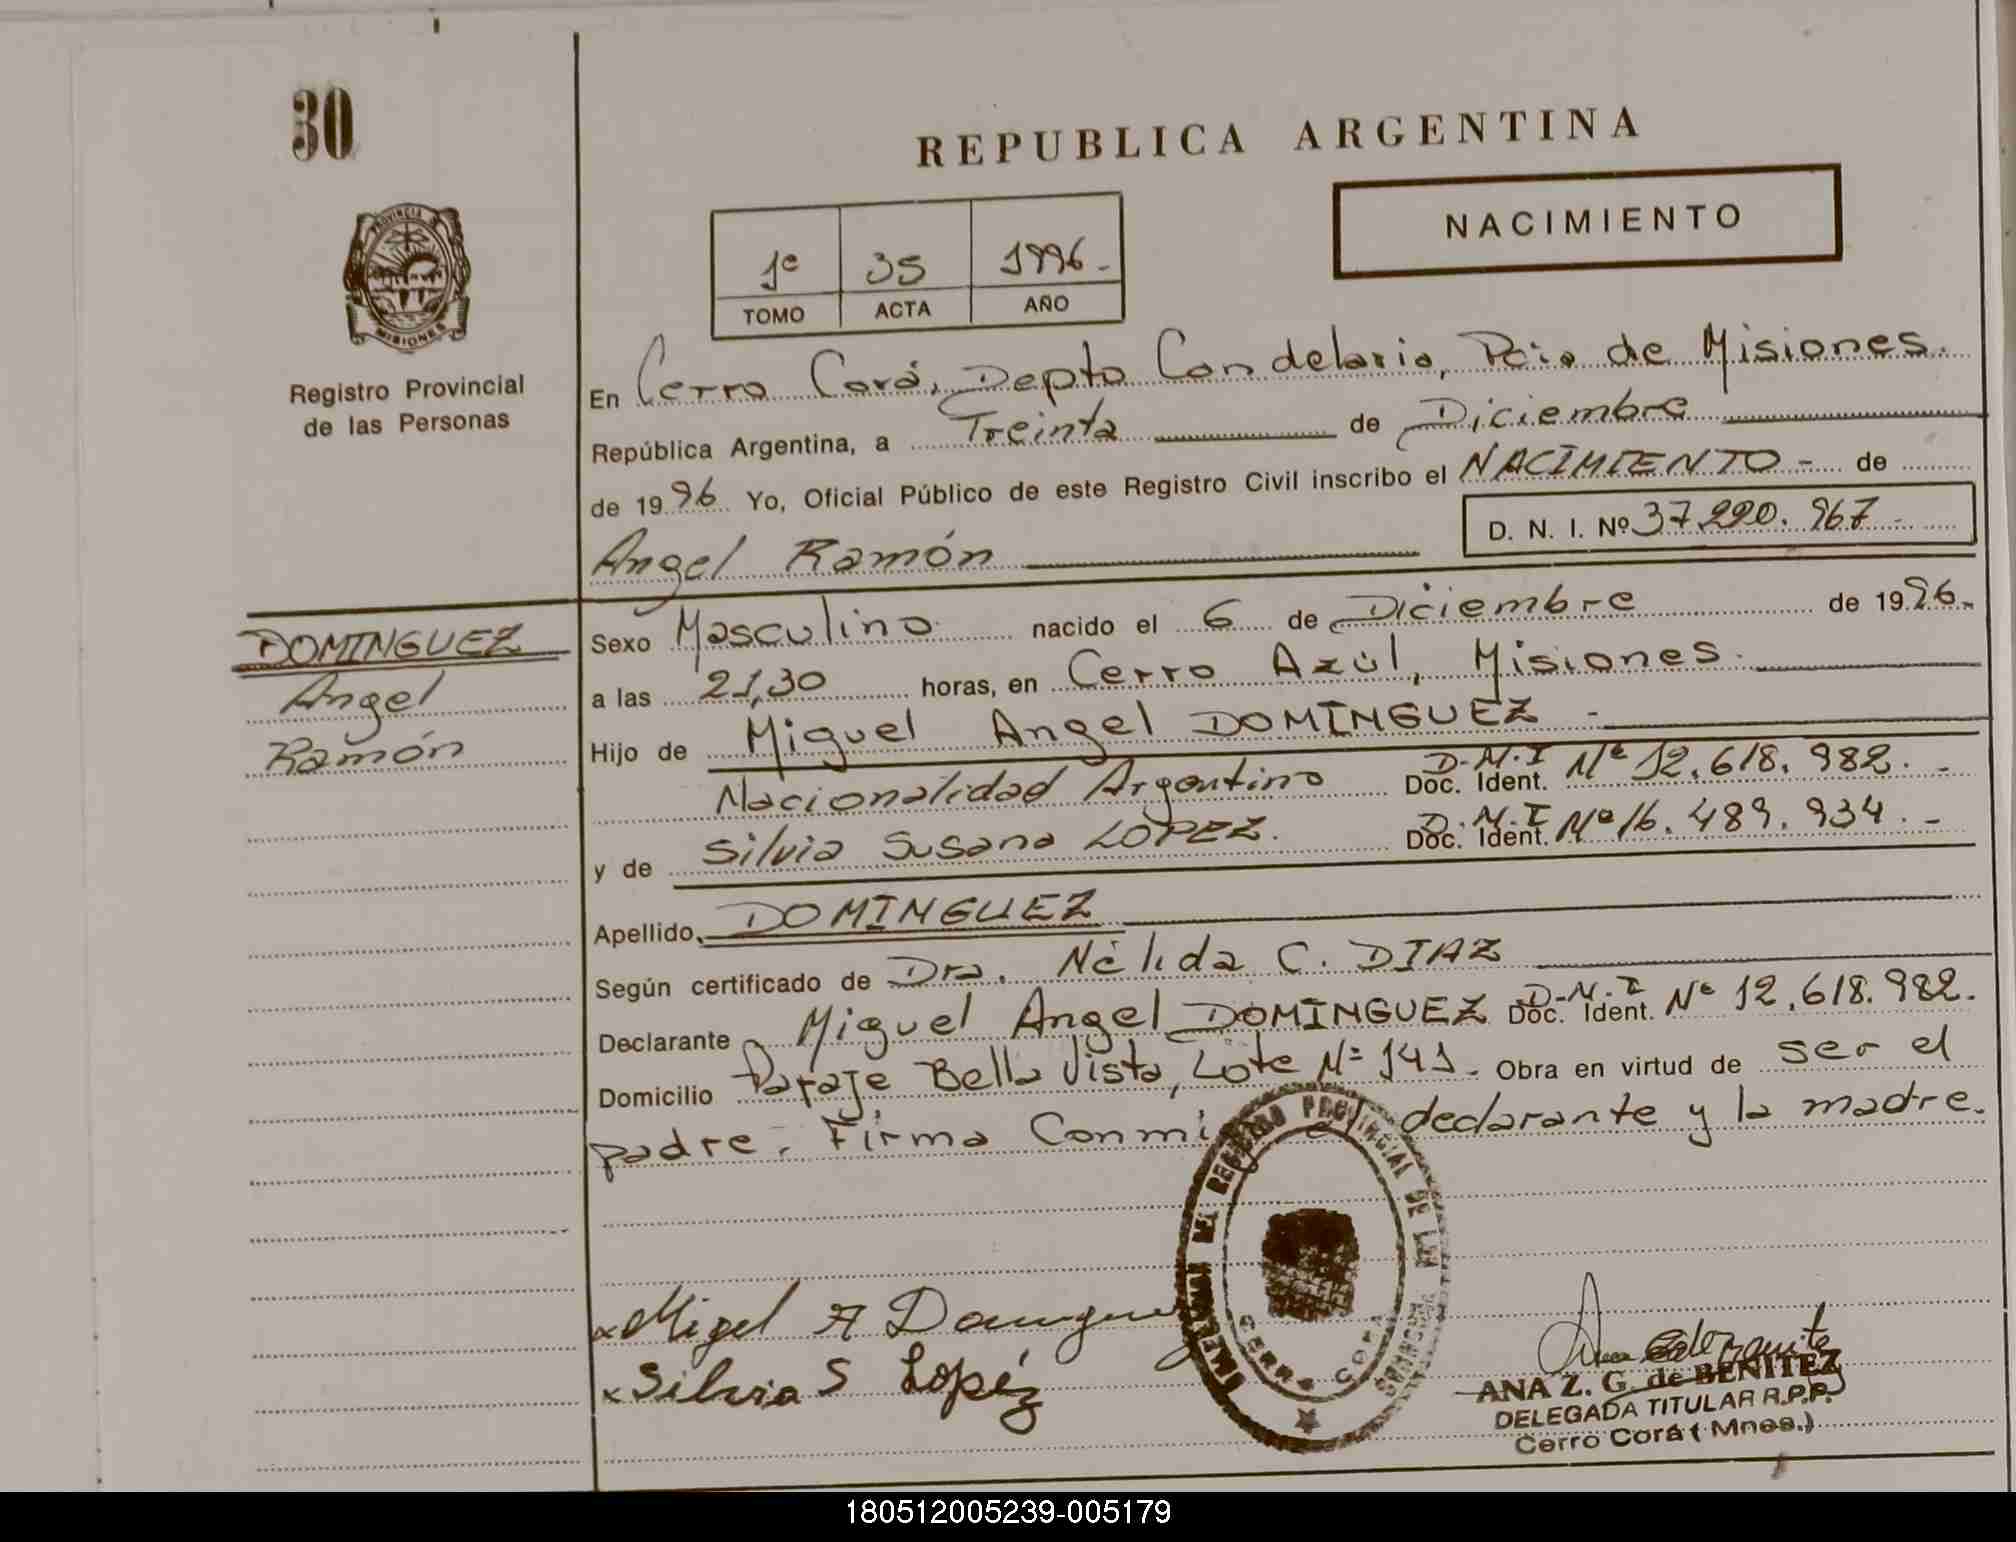 30
REPUBLICA ARGENTINA
NACIMIENTO
1º 35 1996.-
TOMO ACTA AÑO
PROVINCIA DE
MISIONES
Registro Provincial
de las Personas
En Cerro Corá, Depto Candelaria, Pcia de Misiones.
República Argentina, a Treinta de Diciembre
de 1996 Yo, Oficial Público de este Registro Civil inscribo el NACIMIENTO - de
D. N. I. Nº 37.220.967 -
Angel Ramón
DOMINGUEZ
Angel
Ramón
Sexo Masculino nacido el 6 de Diciembre de 1996.-
a las 21,30 horas, en Cerro Azúl, Misiones.
Hijo de Miguel Angel DOMINGUEZ -
Nacionalidad Argentino D.N.I Doc. Ident. Nº 12.618.982. -
y de Silvia Susana LOPEZ. D.N.I Doc. Ident. Nº 16.489.934. -
Apellido DOMINGUEZ
Según certificado de Dra. Nélida C. DIAZ
Declarante Miguel Angel DOMINGUEZ D.N.I Doc. Ident. Nº 12.618.982.
Domicilio Paraje Bella Vista, Lote Nº 141. Obra en virtud de ser el
padre. Firma declarante y la madre.
REGISTRO PROVINCIAL DE LAS PERSONAS
CERRO CORA
x Migel A
x Silvia S Lopéz
ANA Z. G. de BENITEZ
DELEGADA TITULAR R.P.P.
Cerro Corá (Mnes.)
180512005239-005179